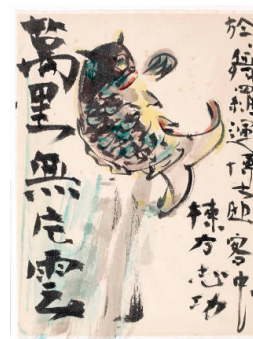 於羅博士邸客中
棟方志功
萬里無片雲